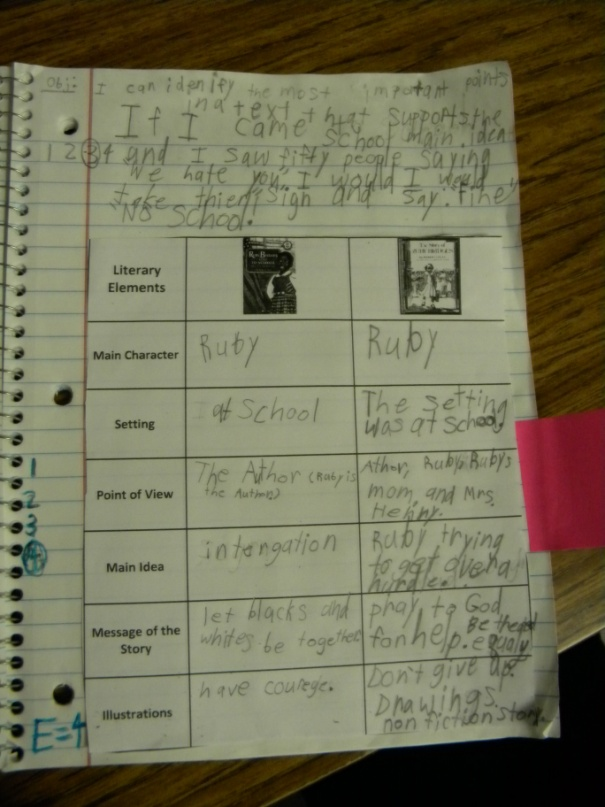 Obj: I can idenify the most important points
in a text that supports the
If I came to School main idea
1 2 3 4 and I saw fifty people saying
We hate you". I would I would
take thier sign and say. "Fine"
"No School!
Literary Elements
Main Character
Ruby
Ruby
Setting
at School
The setting
was at school.
Point of View
The Athor (Ruby is
the Author)
Athor, Ruby, Ruby's
mom, and Mrs.
Henry.
Main Idea
intergation
Ruby trying
to get over a
hurdle.
Message of the Story
let blacks and
whites be together
pray to God
for help. Be treated
equaly
Illustrations
have courege.
Don't give up.
Drawings.
non fiction story.
1
2
3
4
E=4